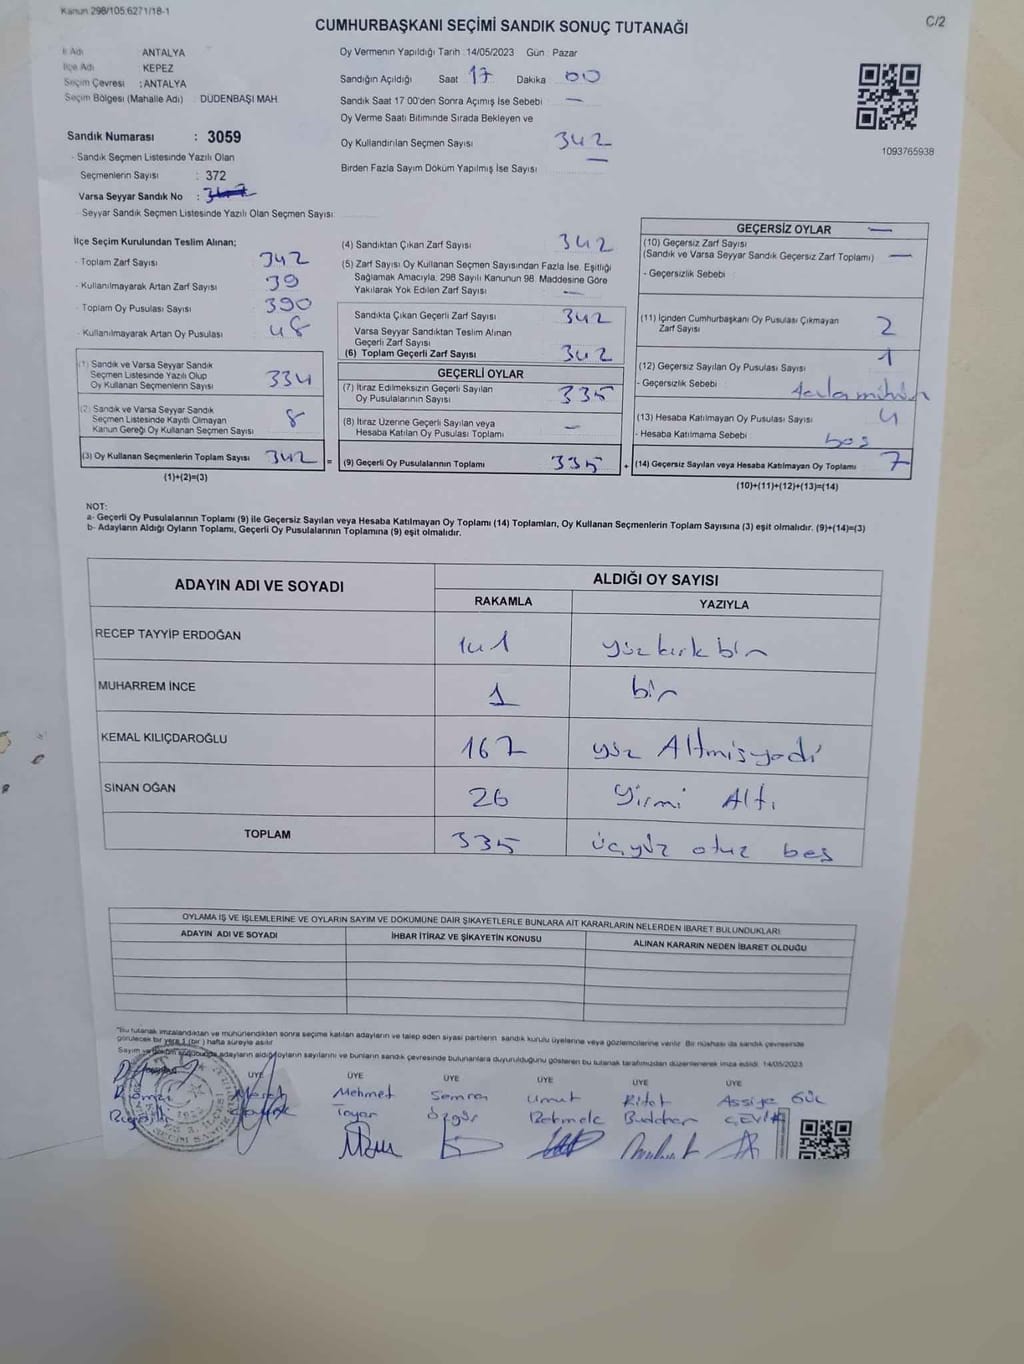 Kanun 298/105.6271/18-1
C/2
CUMHURBAŞKANI SEÇİMİ SANDIK SONUÇ TUTANAĞI
İl Adı ANTALYA
İlçe Adı KEPEZ
Seçim Çevresi : ANTALYA
Seçim Bölgesi (Mahalle Adı) : DÜDENBAŞI MAH
Sandık Numarası : 3059
- Sandık Seçmen Listesinde Yazılı Olan
Seçmenlerin Sayısı : 372
Varsa Seyyar Sandık No :
- Seyyar Sandık Seçmen Listesinde Yazılı Olan Seçmen Sayısı
Oy Vermenin Yapıldığı Tarih : 14/05/2023 Gün : Pazar
Sandığın Açıldığı Saat 17 Dakika 00
Sandık Saat 17 00'den Sonra Açımış İse Sebebi —
Oy Verme Saati Bitiminde Sırada Bekleyen ve
Oy Kullandırılan Seçmen Sayısı 342
Birden Fazla Sayım Döküm Yapılmış İse Sayısı —
1093765938
İlçe Seçim Kurulundan Teslim Alınan;
- Toplam Zarf Sayısı 342
- Kullanılmayarak Artan Zarf Sayısı 39
- Toplam Oy Pusulası Sayısı 390
- Kullanılmayarak Artan Oy Pusulası 48
(1) Sandık ve Varsa Seyyar Sandık
Seçmen Listesinde Yazılı Olup
Oy Kullanan Seçmenlerin Sayısı 334
(2) Sandık ve Varsa Seyyar Sandık
Seçmen Listesinde Kayıtlı Olmayan
Kanun Gereği Oy Kullanan Seçmen Sayısı 8
(3) Oy Kullanan Seçmenlerin Toplam Sayısı 342 =
(1)+(2)=(3)
(4) Sandıktan Çıkan Zarf Sayısı 342
(5) Zarf Sayısı Oy Kullanan Seçmen Sayısından Fazla İse, Eşitliği
Sağlamak Amacıyla, 298 Sayılı Kanunun 98. Maddesine Göre
Yakılarak Yok Edilen Zarf Sayısı —
Sandıkta Çıkan Geçerli Zarf Sayısı 342
Varsa Seyyar Sandıktan Teslim Alınan
Geçerli Zarf Sayısı
(6) Toplam Geçerli Zarf Sayısı 342
GEÇERLİ OYLAR
(7) İtiraz Edilmeksizin Geçerli Sayılan
Oy Pusulalarının Sayısı 335
(8) İtiraz Üzerine Geçerli Sayılan veya
Hesaba Katılan Oy Pusulası Toplamı —
(9) Geçerli Oy Pusulalarının Toplamı 335 +
GEÇERSİZ OYLAR —
(10) Geçersiz Zarf Sayısı
(Sandık ve Varsa Seyyar Sandık Geçersiz Zarf Toplamı) —
- Geçersizlik Sebebi
(11) İçinden Cumhurbaşkanı Oy Pusulası Çıkmayan
Zarf Sayısı 2
(12) Geçersiz Sayılan Oy Pusulası Sayısı 1
- Geçersizlik Sebebi
(13) Hesaba Katılmayan Oy Pusulası Sayısı 4
- Hesaba Katılmama Sebebi boş
(14) Geçersiz Sayılan veya Hesaba Katılmayan Oy Toplamı 7
(10)+(11)+(12)+(13)=(14)
NOT:
a- Geçerli Oy Pusulalarının Toplamı (9) ile Geçersiz Sayılan veya Hesaba Katılmayan Oy Toplamı (14) Toplamları, Oy Kullanan Seçmenlerin Toplam Sayısına (3) eşit olmalıdır. (9)+(14)=(3)
b- Adayların Aldığı Oyların Toplamı, Geçerli Oy Pusulalarının Toplamına (9) eşit olmalıdır.
ADAYIN ADI VE SOYADI ALDIĞI OY SAYISI
RAKAMLA YAZIYLA
RECEP TAYYİP ERDOĞAN 141 yüz kırk bir
MUHARREM İNCE 1 bir
KEMAL KILIÇDAROĞLU 167 yüz Altmışyedi
SİNAN OĞAN 26 Yirmi Altı
TOPLAM 335 üçyüz otuz beş
OYLAMA İŞ VE İŞLEMLERİNE VE OYLARIN SAYIM VE DÖKÜMÜNE DAİR ŞİKAYETLERLE BUNLARA AİT KARARLARIN NELERDEN İBARET BULUNDUKLARI
ADAYIN ADI VE SOYADI İHBAR İTİRAZ VE ŞİKAYETİN KONUSU ALINAN KARARIN NEDEN İBARET OLDUĞU
"Bu tutanak imzalandıktan ve mühürlendikten sonra seçime katılan adayların ve talep eden siyasi partilerin sandık kurulu üyelerine veya gözlemcilerine verilir. Bir nüshası da sandık çevresinde
görülecek bir yere 1 (bir) hafta süreyle asılır
Sayım ve döküm sonucunda adayların aldığı oyların sayılarını ve bunların sandık çevresinde bulunanlara duyurulduğunu gösteren bu tutanak tarafımızdan düzenlenerek imza edildi. 14/05/2023
ÜYE ÜYE ÜYE ÜYE ÜYE ÜYE
Mehmet Semra Umut Rıfat Assiye GÜL
Tayar Özgür ÇEVİK